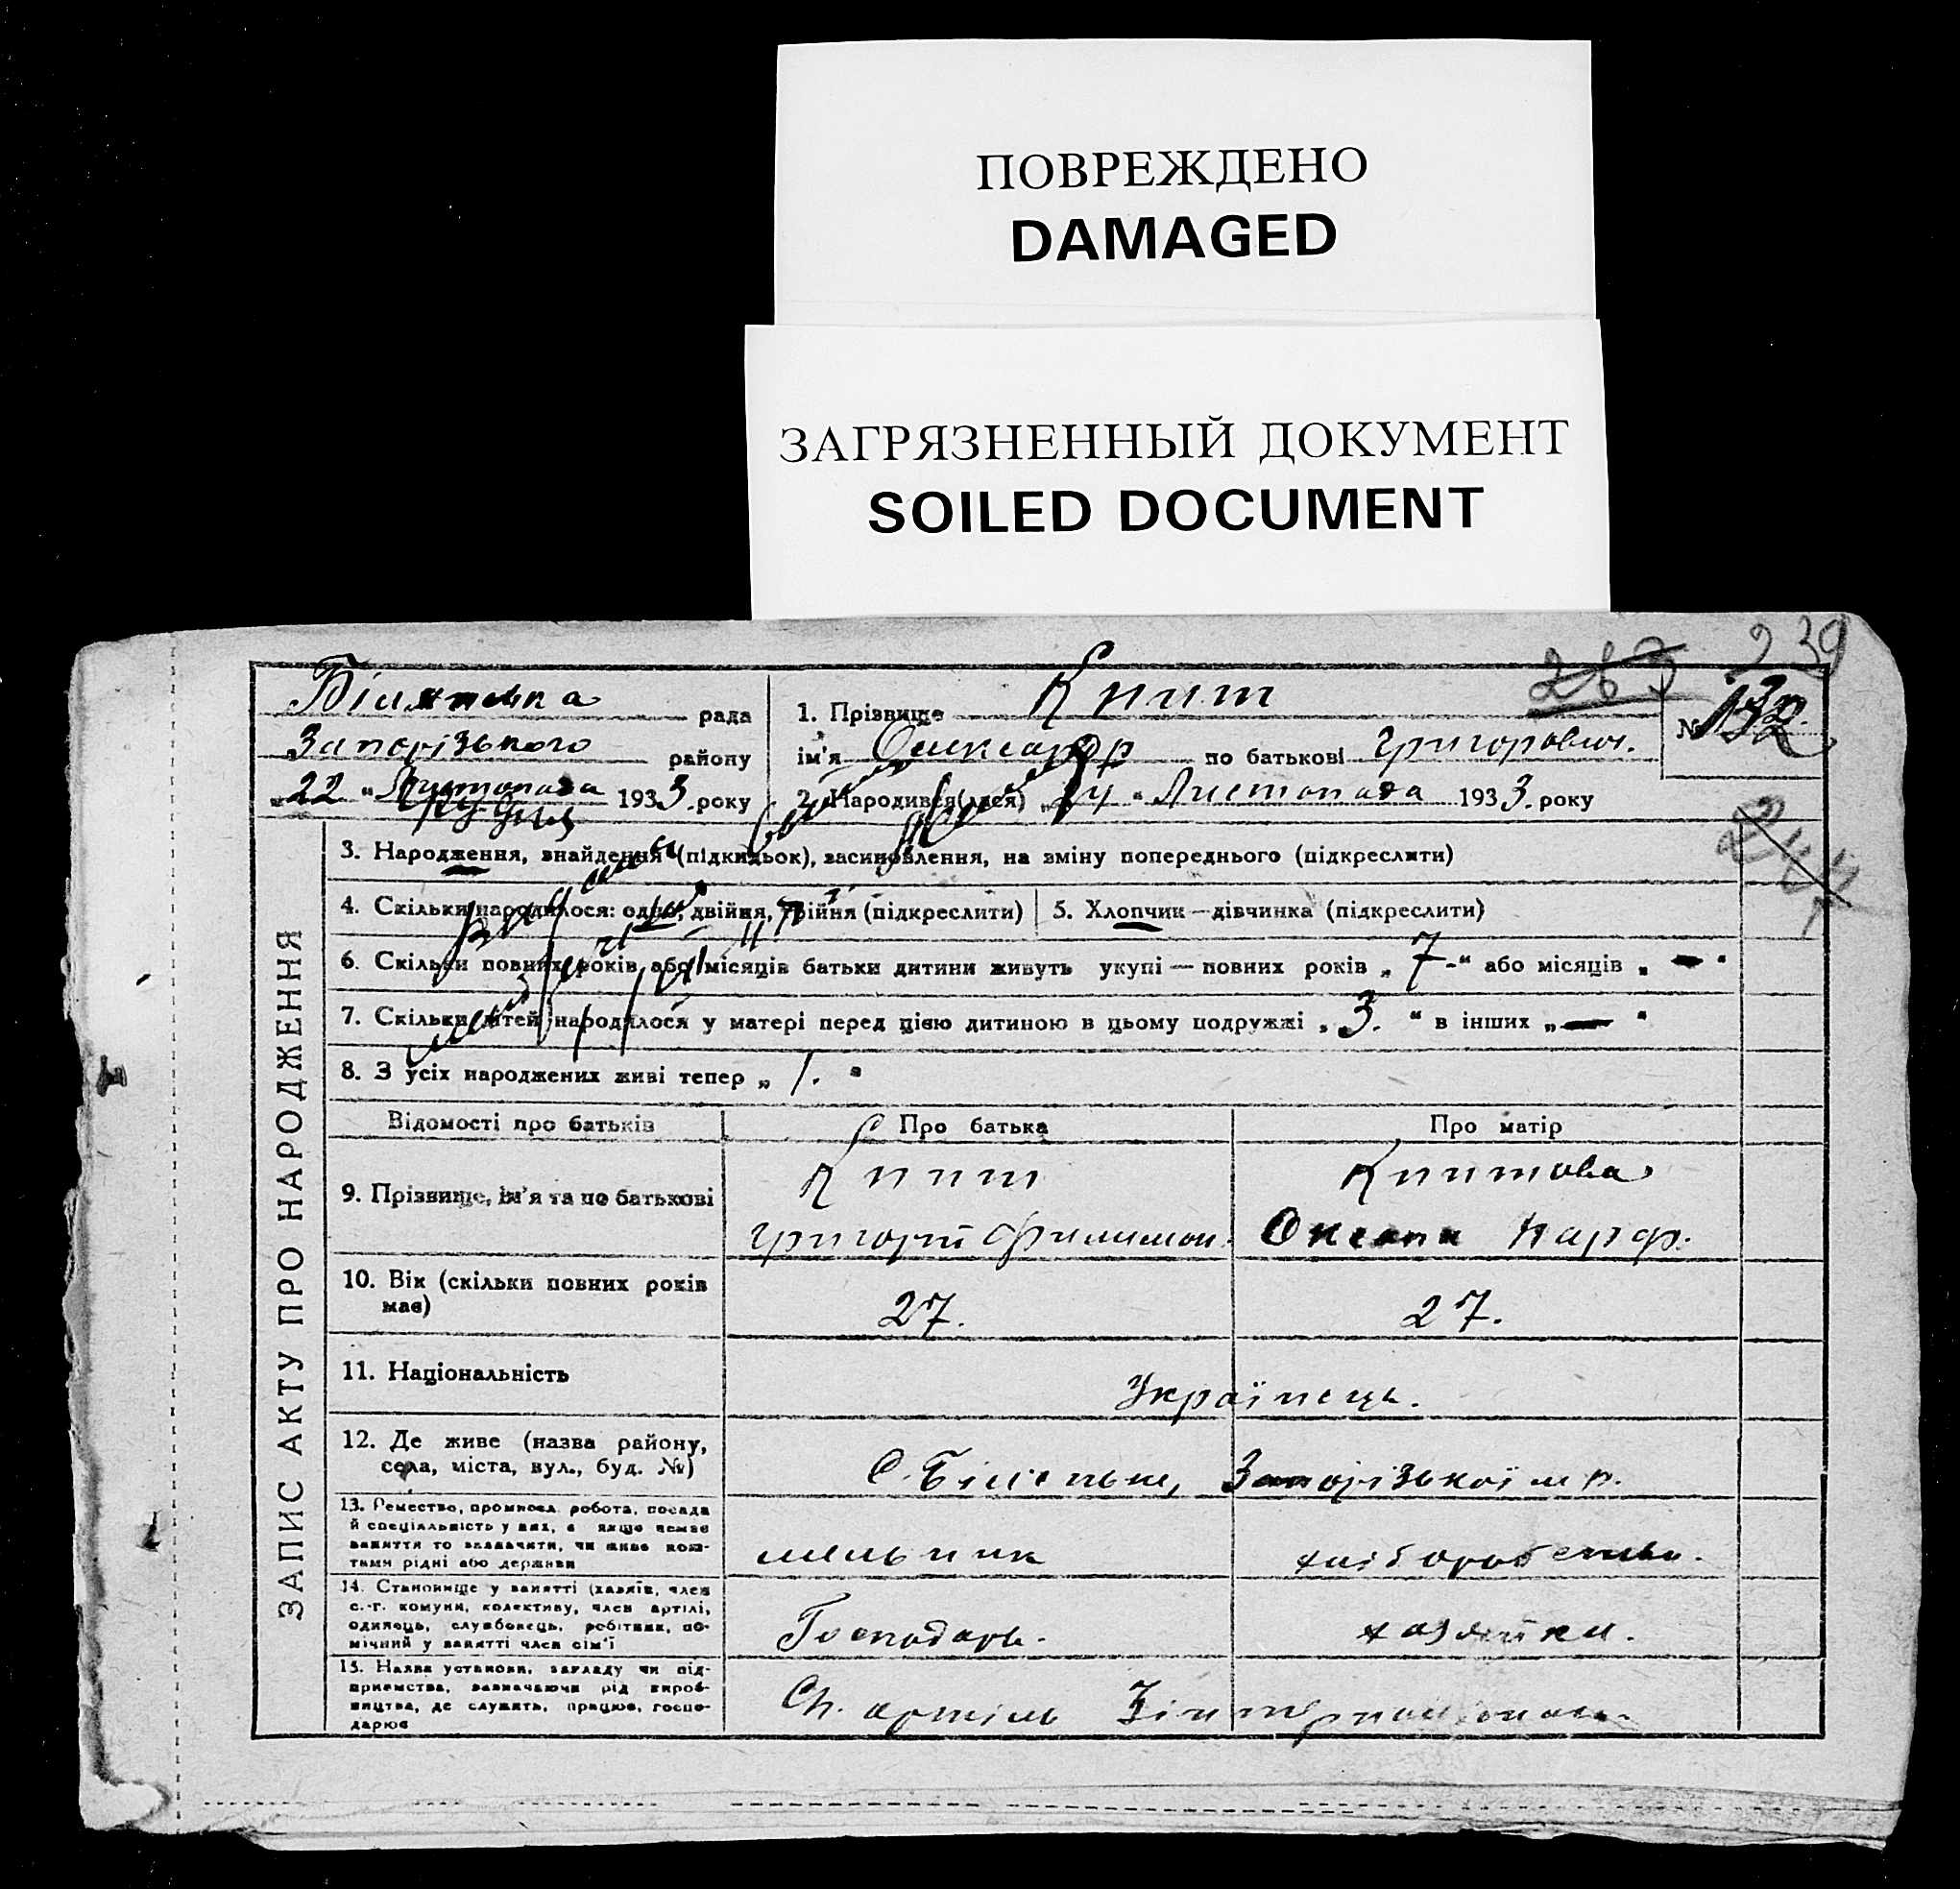 ПОВРЕЖДЕНО
DAMAGED
ЗАГРЯЗНЕННЫЙ ДОКУМЕНТ
SOILED DOCUMENT
239
263
рада
Запорізького району
"22" Листопада 1933. року
Грудня
1. Прізвище Книш
ім'я Олександр по батькові Григорович.
№ 132
2. Народився(лася) "24" Листопада 1933. року
244
ЗАПИС АКТУ ПРО НАРОДЖЕННЯ
3. Народження, знайдення (підкидьок), засиновлення, на зміну попереднього (підкреслити)
4. Скільки народилося: одно, двійня, трійня (підкреслити)
5. Хлопчик—дівчинка (підкреслити)
6. Скільки повних років або місяців батьки дитини живуть укупі — повних років „ 7 -“ або місяців „ — “
7. Скільки дітей народилося у матері перед цією дитиною в цьому подружжі „ 3. “ в інших „ — “
8. З усіх народжених живі тепер „ 1. “
Відомості про батьків Про батька Про матір
9. Прізвище, ім'я та по батькові
Книш
Григорій Филимон.
Оксана Парф.
10. Вік (скільки повних років
має)
27. 27.
11. Національність
Українець.
12. Де живе (назва району,
села, міста, вул., буд. №)
С. Біленьке, Запорізької м р.
13. Ремество, промисел. робота, посада
й спеціальність у них, а якщо немає
заняття то зазначити, чи живе кош-
тами рідні або держави
мельник хліборобство.
14. Становище у занятті (хазяїн, член
с.-г. комуни, колективу, член артілі,
одинець, службовець, робітник, по-
мічний у занятті член сім'ї
Господарь. хазяйка.
15. Назва установи, закладу чи під-
приємства, зазначаючи рід вироб-
ництва, де служить, працює, госпо-
дарює
артіль